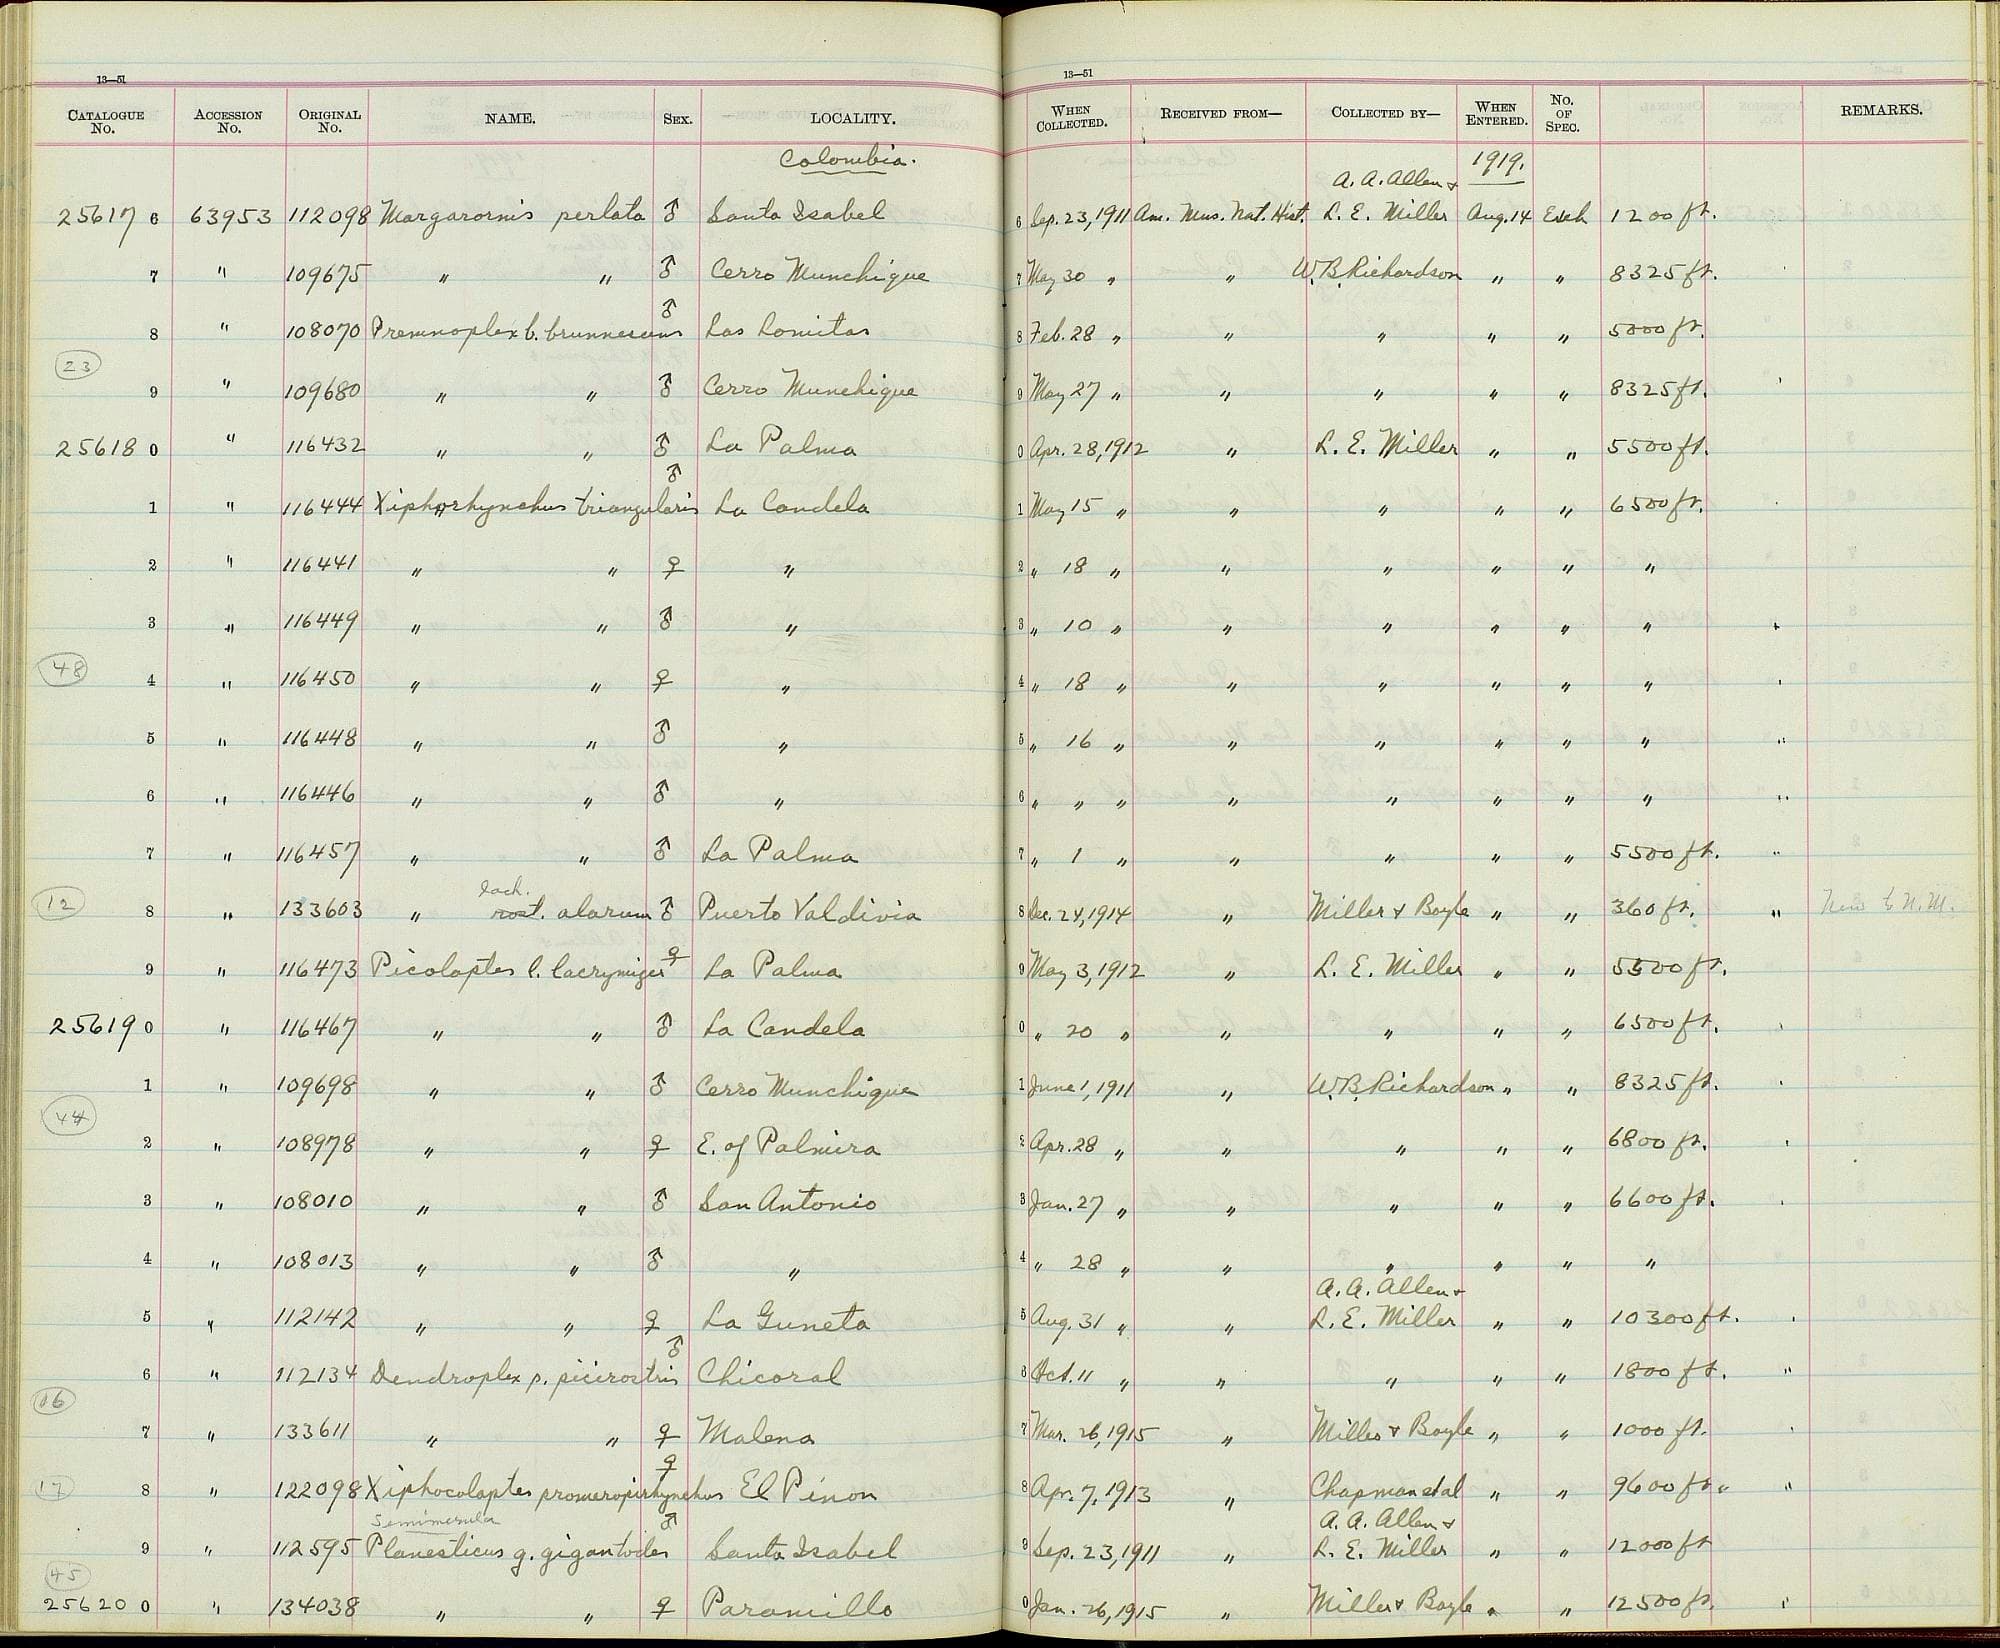 13—51 13—51
CATALOGUE No. ACCESSION No. ORIGINAL No. NAME. SEX. LOCALITY. WHEN COLLECTED. RECEIVED FROM— COLLECTED BY— WHEN ENTERED. No. OF SPEC. REMARKS.
Colombia. 1919.
A. A. Allen &
25617 6 63953 112098 Margarornis perlata ♂ Santa Isabel 6 Sep. 23, 1911 Am. Mus. Nat. Hist. L. E. Miller Aug. 14 Exch 1200 ft.
7 " 109675 " " ♂ Cerro Munchique 7 May 30 " " W. B. Richardson " " 8325 ft.
8 " 108070 Premnoplex b. brunnescens ♂ Las Lomitas 8 Feb. 28 " " " " " 5000 ft.
23
9 " 109680 " " ♂ Cerro Munchique 9 May 27 " " " " " 8325 ft.
25618 0 " 116432 " " ♂ La Palma 0 Apr. 28, 1912 " L. E. Miller " " 5500 ft.
1 " 116444 Xiphorhynchus triangularis ♂ La Candela 1 May 15 " " " " " 6500 ft.
2 " 116441 " " ♀ " 2 " 18 " " " " " "
3 " 116449 " " ♂ " 3 " 10 " " " " " "
48
4 " 116450 " " ♀ " 4 " 18 " " " " " "
5 " 116448 " " ♂ " 5 " 16 " " " " " "
6 " 116446 " " ♂ " 6 " " " " " " " "
7 " 116457 " " ♂ La Palma 7 " 1 " " " " " 5500 ft.
lach.
12 8 " 133603 " rost. alarum ♂ Puerto Valdivia 8 Dec. 24, 1914 " Miller & Boyle " " 360 ft. " New to N. M.
9 " 116473 Picolaptes l. lacrymiger ♀ La Palma 9 May 3, 1912 " L. E. Miller " " 5500 ft.
25619 0 " 116467 " " ♂ La Candela 0 " 20 " " " " " 6500 ft.
1 " 109698 " " ♂ Cerro Munchique 1 June 1, 1911 " W. B. Richardson " " 8325 ft.
44
2 " 108978 " " ♀ E. of Palmira 2 Apr. 28 " " " " " 6800 ft.
3 " 108010 " " ♂ San Antonio 3 Jan. 27 " " " " " 6600 ft.
4 " 108013 " " ♂ " 4 " 28 " " " " " "
A. A. Allen &
5 " 112142 " " ♀ La Guneta 5 Aug. 31 " " L. E. Miller " " 10300 ft.
6 " 112134 Dendroplex p. picirostris ♂ Chicoral 6 Oct. 11 " " " " " 1800 ft. "
16
7 " 133611 " " ♀ Malena 7 Mar. 26, 1915 " Miller & Boyle " " 1000 ft.
17 8 " 122098 Xiphocolaptes promeropirhynchus ♀ El Pinon 8 Apr. 7, 1913 " Chapman et al " " 9600 ft. "
semimerula A. A. Allen &
9 " 112595 Planesticus g. gigantodes ♂ Santa Isabel 9 Sep. 23, 1911 " L. E. Miller " " 12000 ft
45
25620 0 " 134038 " " ♀ Paramillo 0 Jan. 26, 1915 " Miller & Boyle " " 12500 ft.